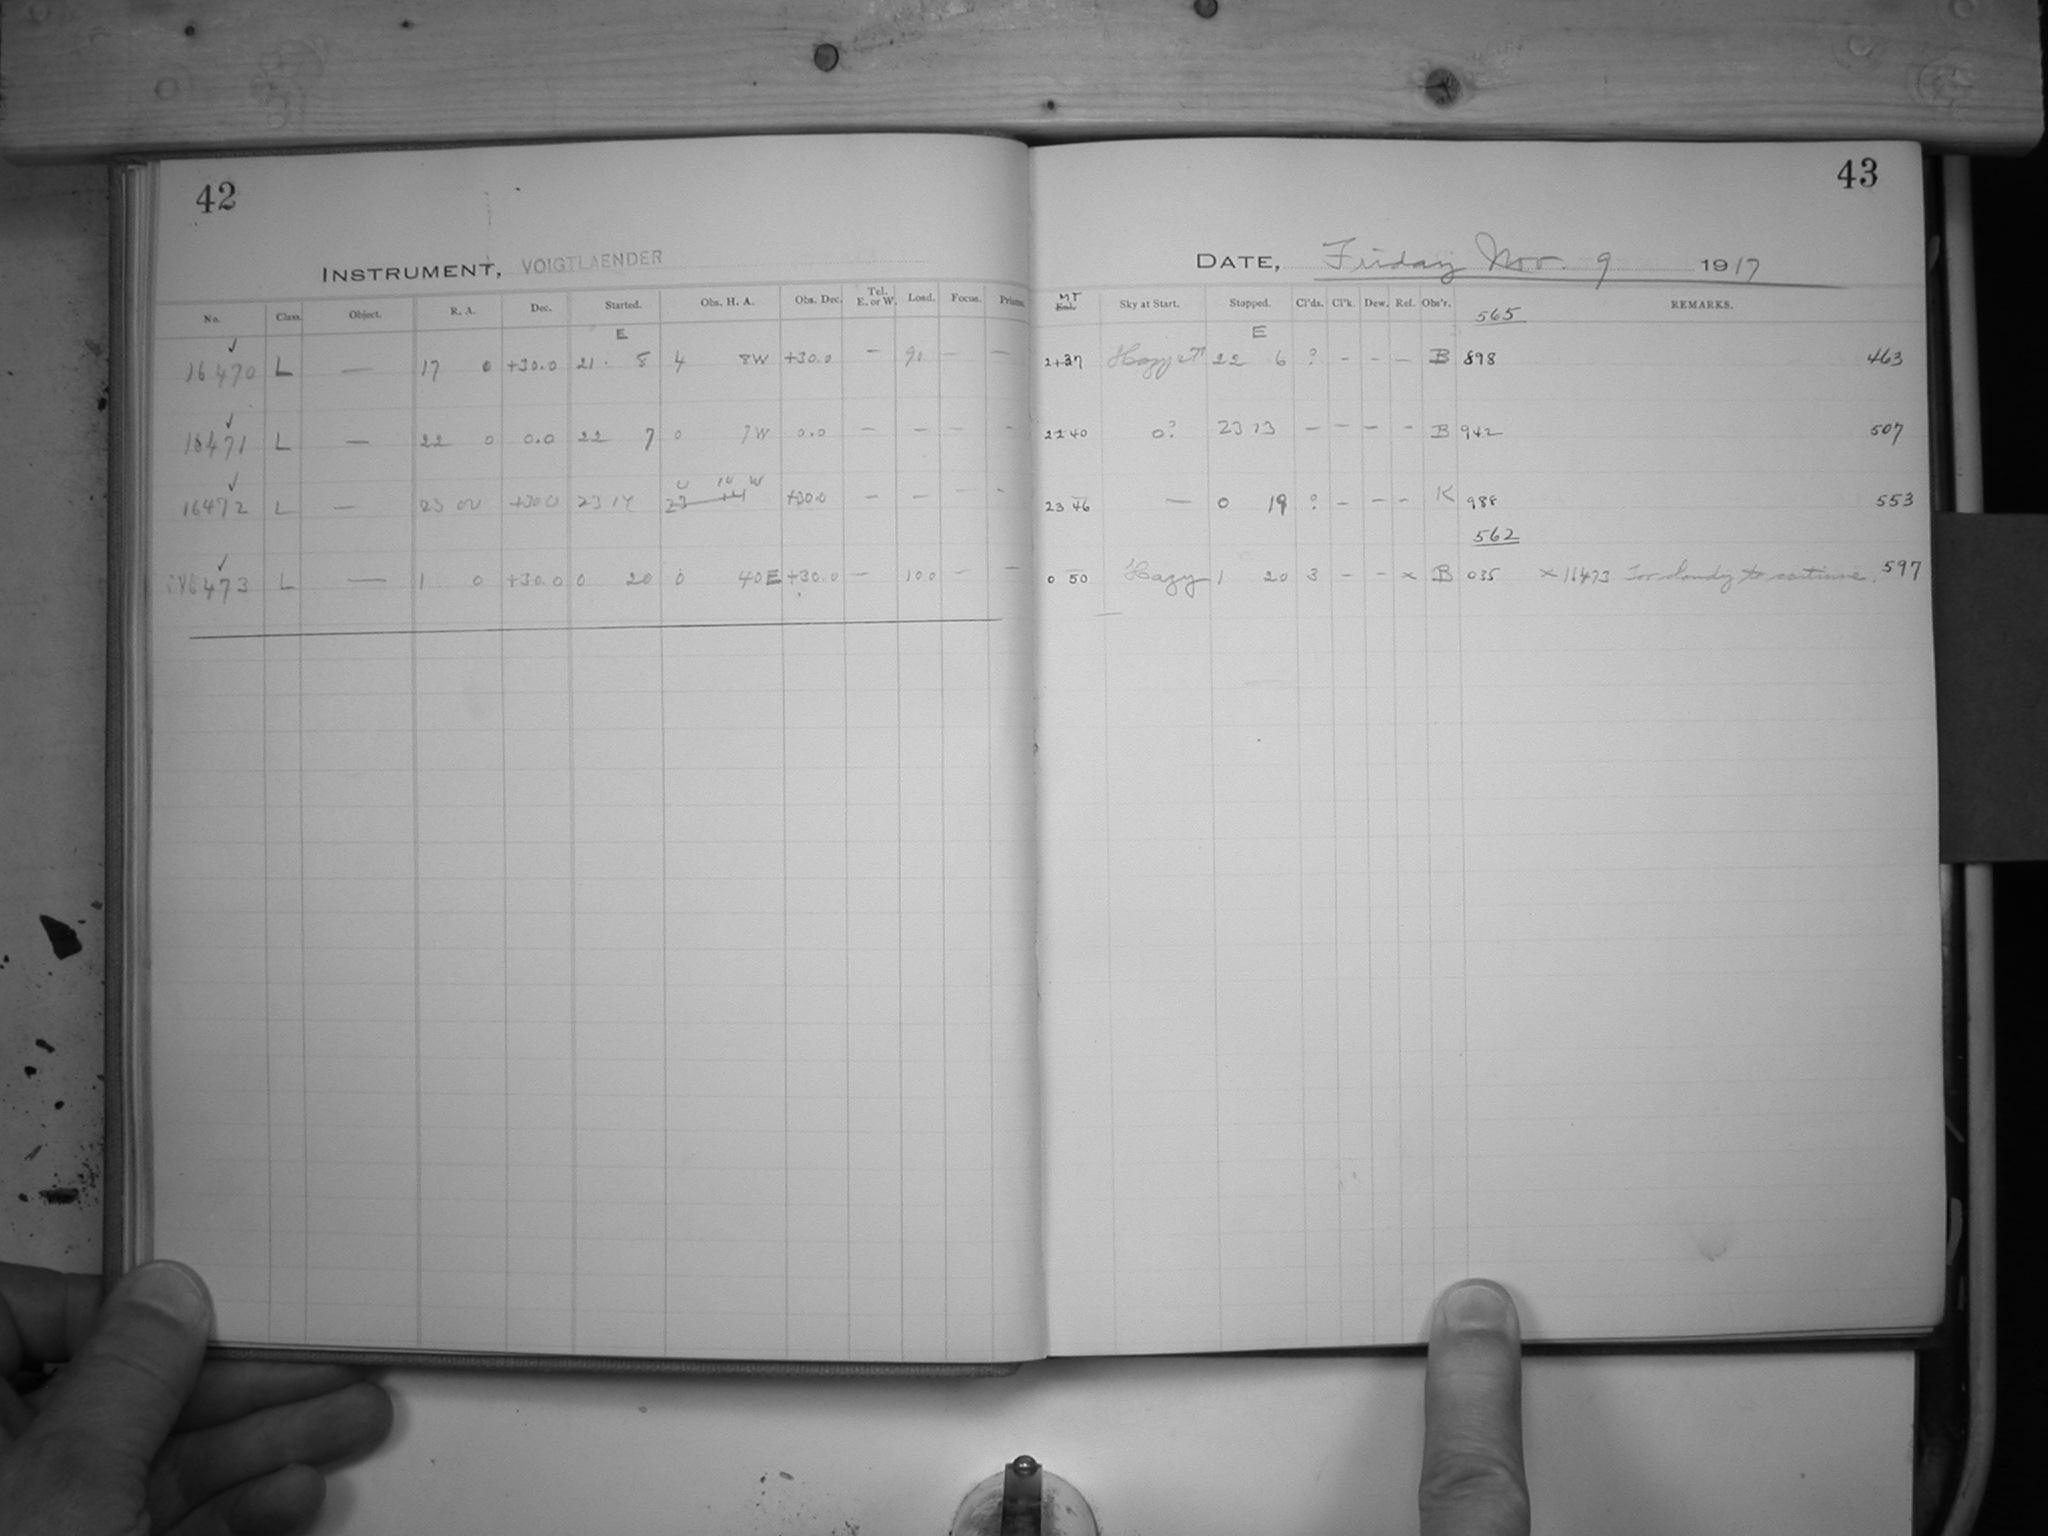 42
INSTRUMENT, VOIGTLAENDER
No. Class. Object. R. A. Dec. Started. Obs. H. A. Obs. Dec. Tel. E. or W. Load. Focus. Prisms.
E
16470 L — 17 0 +30.0 21 8 4 8W +30.0 — 90 — —
16471 L — 22 0 0.0 22 7 0 7W 0.0 — — — -
16472 L — 23 00 +30.0 23 14 23 +30.0 — — — -
16473 L — 1 0 +30.0 0 20 0 40E +30.0 — 100 — —
43
DATE, Friday Nov. 9 1917
MT Exl. Sky at Start. Stopped. Cl'ds. Cl'k. Dew. Ref. Obs'r. 565 REMARKS.
E
21 37 Hazy 22 6 ? - - — B 898 463
22 40 0? 23 13 — — — - B 942 507
23 46 — 0 19 ? - — - K 988 553
562
0 50 Hazy 1 20 3 - - x B 035 x 16473 Too cloudy to continue. 597